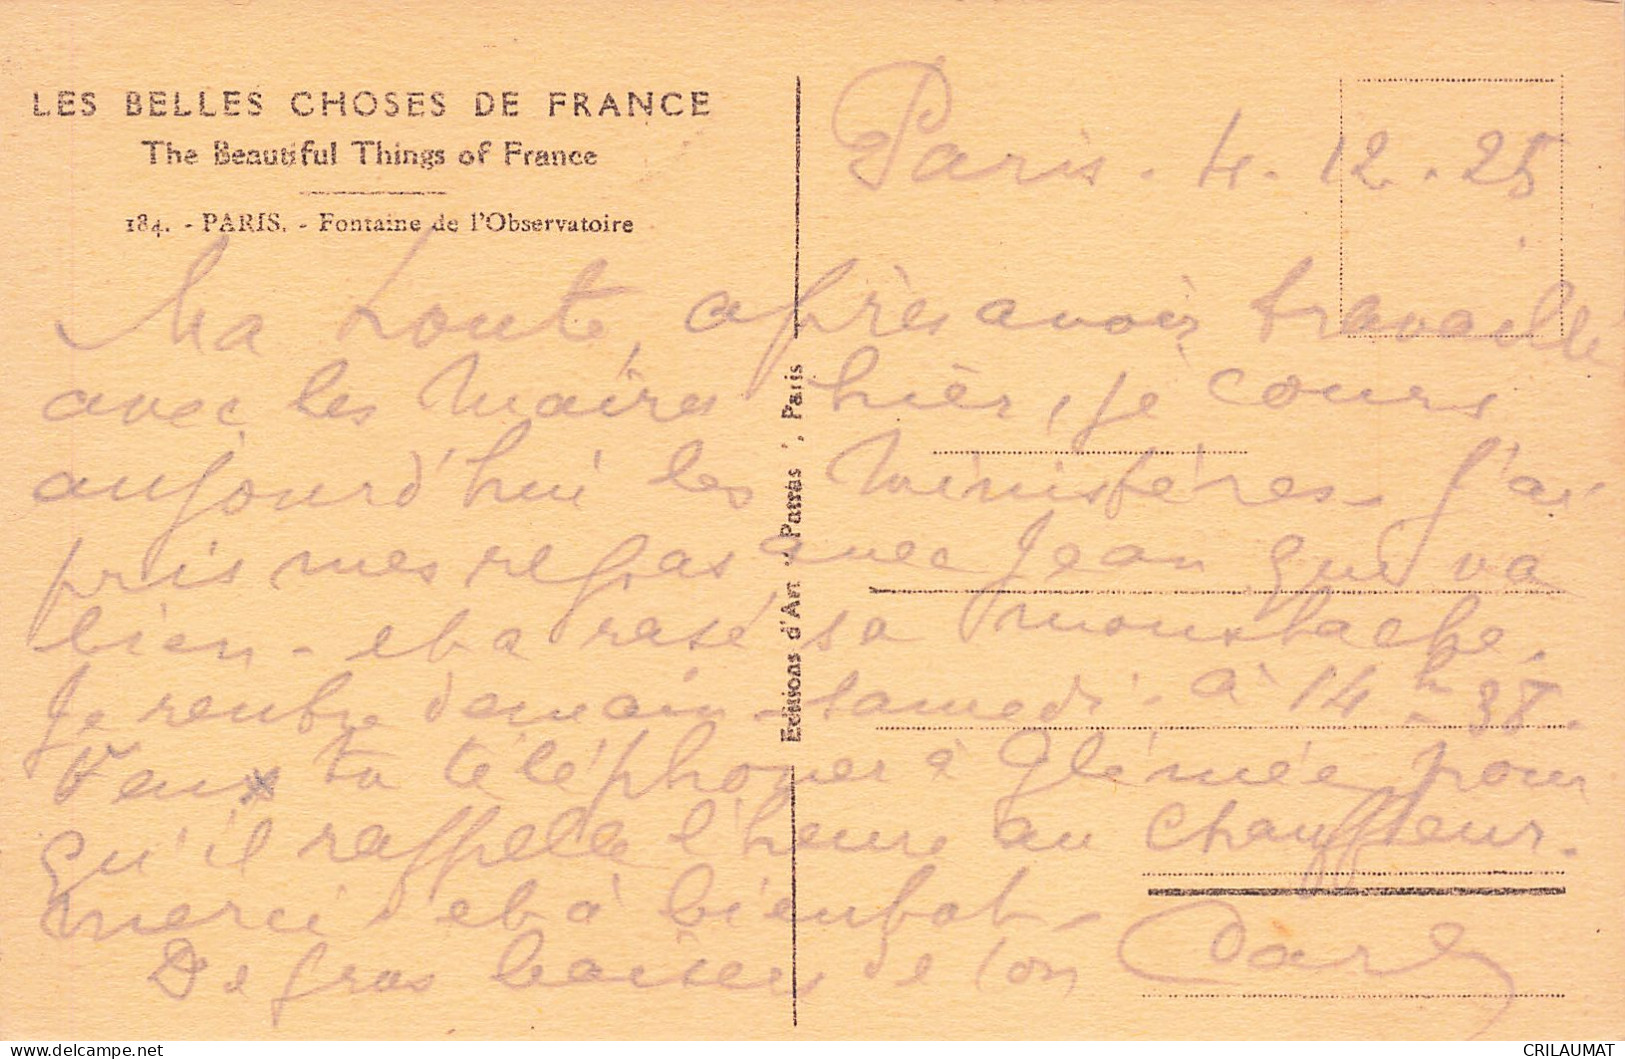 LES BELLES CHOSES DE FRANCE
The Beautiful Things of France
184. - PARIS. - Fontaine de l'Observatoire
Editions d'Art " Parras ", Paris
Paris. 4. 12. 25
Ma Loute, après avoir travaillé
avec les Maires hier, je cours
aujourd'hui les Ministères. J'ai
pris mes repas avec Jean qui va
bien - et a rasé sa moustache.
Je rentre demain - samedi - à 14 h 38.
Veux tu téléphoner à pour
qu'il rappelle l'heure au chauffeur.
merci et à bientot -
De gros baisers de ton
CRILAUMAT